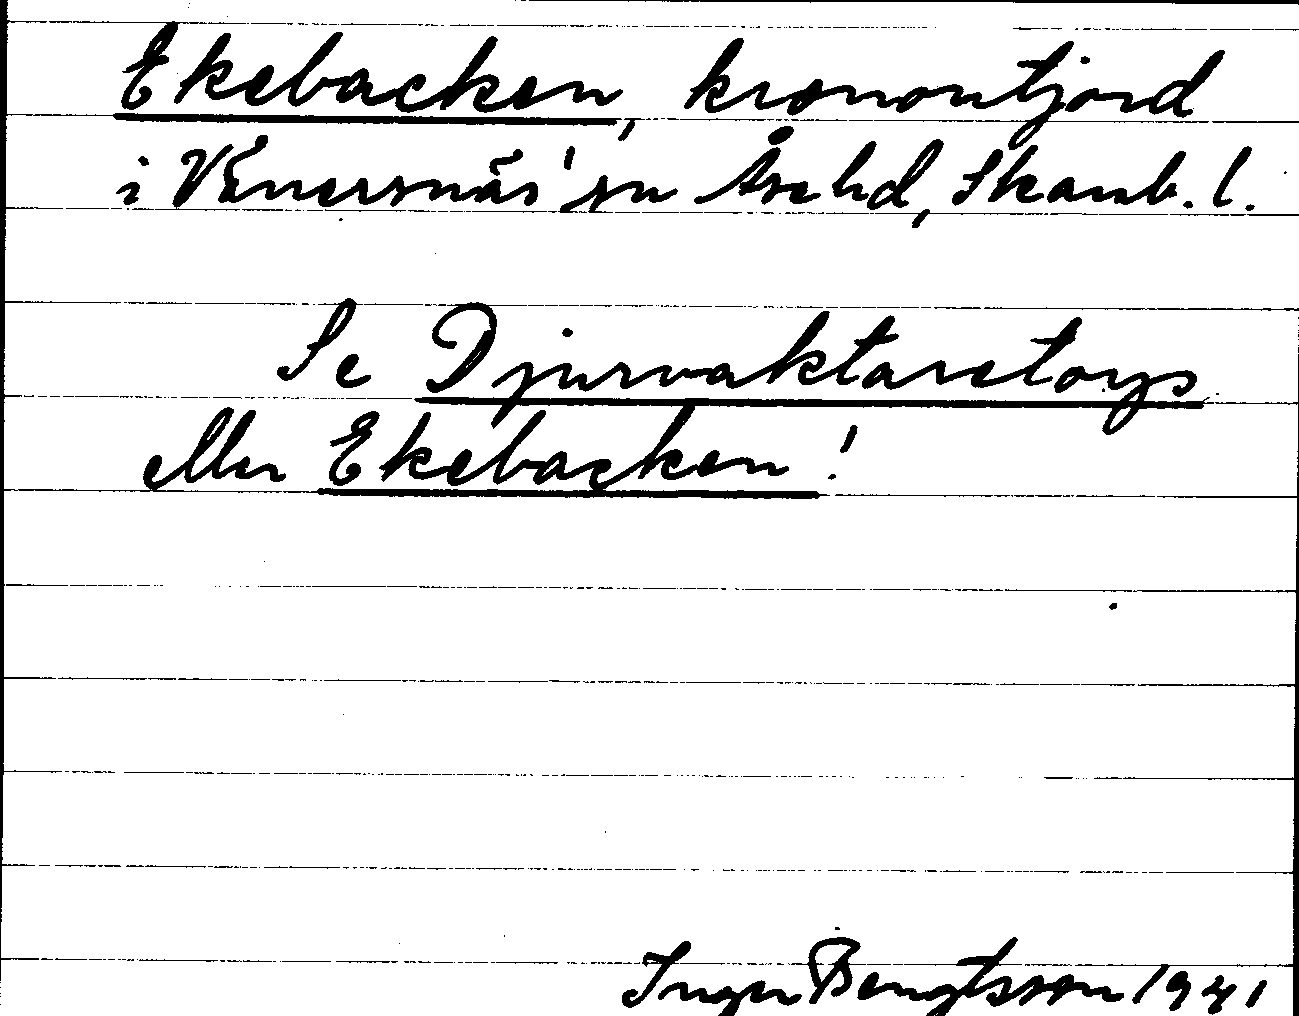 Ekebacken, kronoutjord
i Vänersnäs' sn Åse hd, Skarab. l.
Se Djurvaktaretorps
eller Ekebacken!
Inger Bengtsson 1941